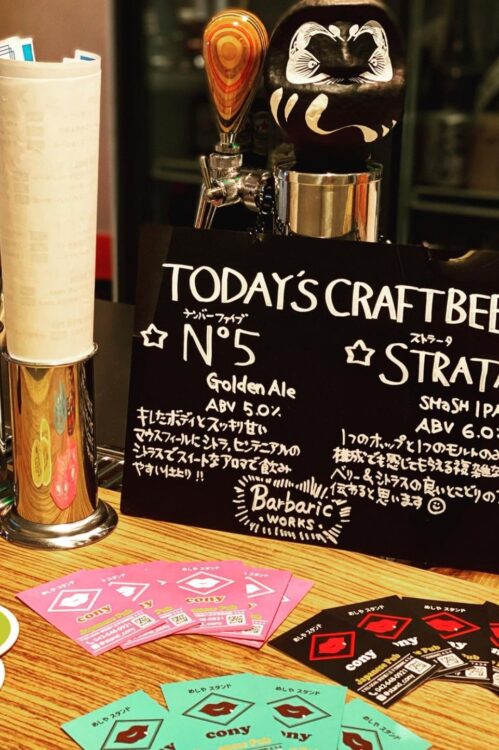 TODAY'S CRAFT BEE
ナンバーファイブ
☆ Nº5
Golden Ale
ABV 5.0%
キレたボディとスッキリ甘い
マウスフィールにシトラ、センテニアルの
シトラスでスイートなアロマで飲み
やすい仕上り!!
Barbaric
WORKS
ストラータ
☆ STRATA
SMaSH IPA
ABV 6.0
1つのホップと1つのモルトのみ
構成でも感じてもらえる複雑
ベリー&シトラスの良いとこどりの
伝わると思います
めしや スタンド
cony
Japanese Pub
めしや スタンド
cony
Japanese Pub
めしや スタンド
cony
めしや スタンド